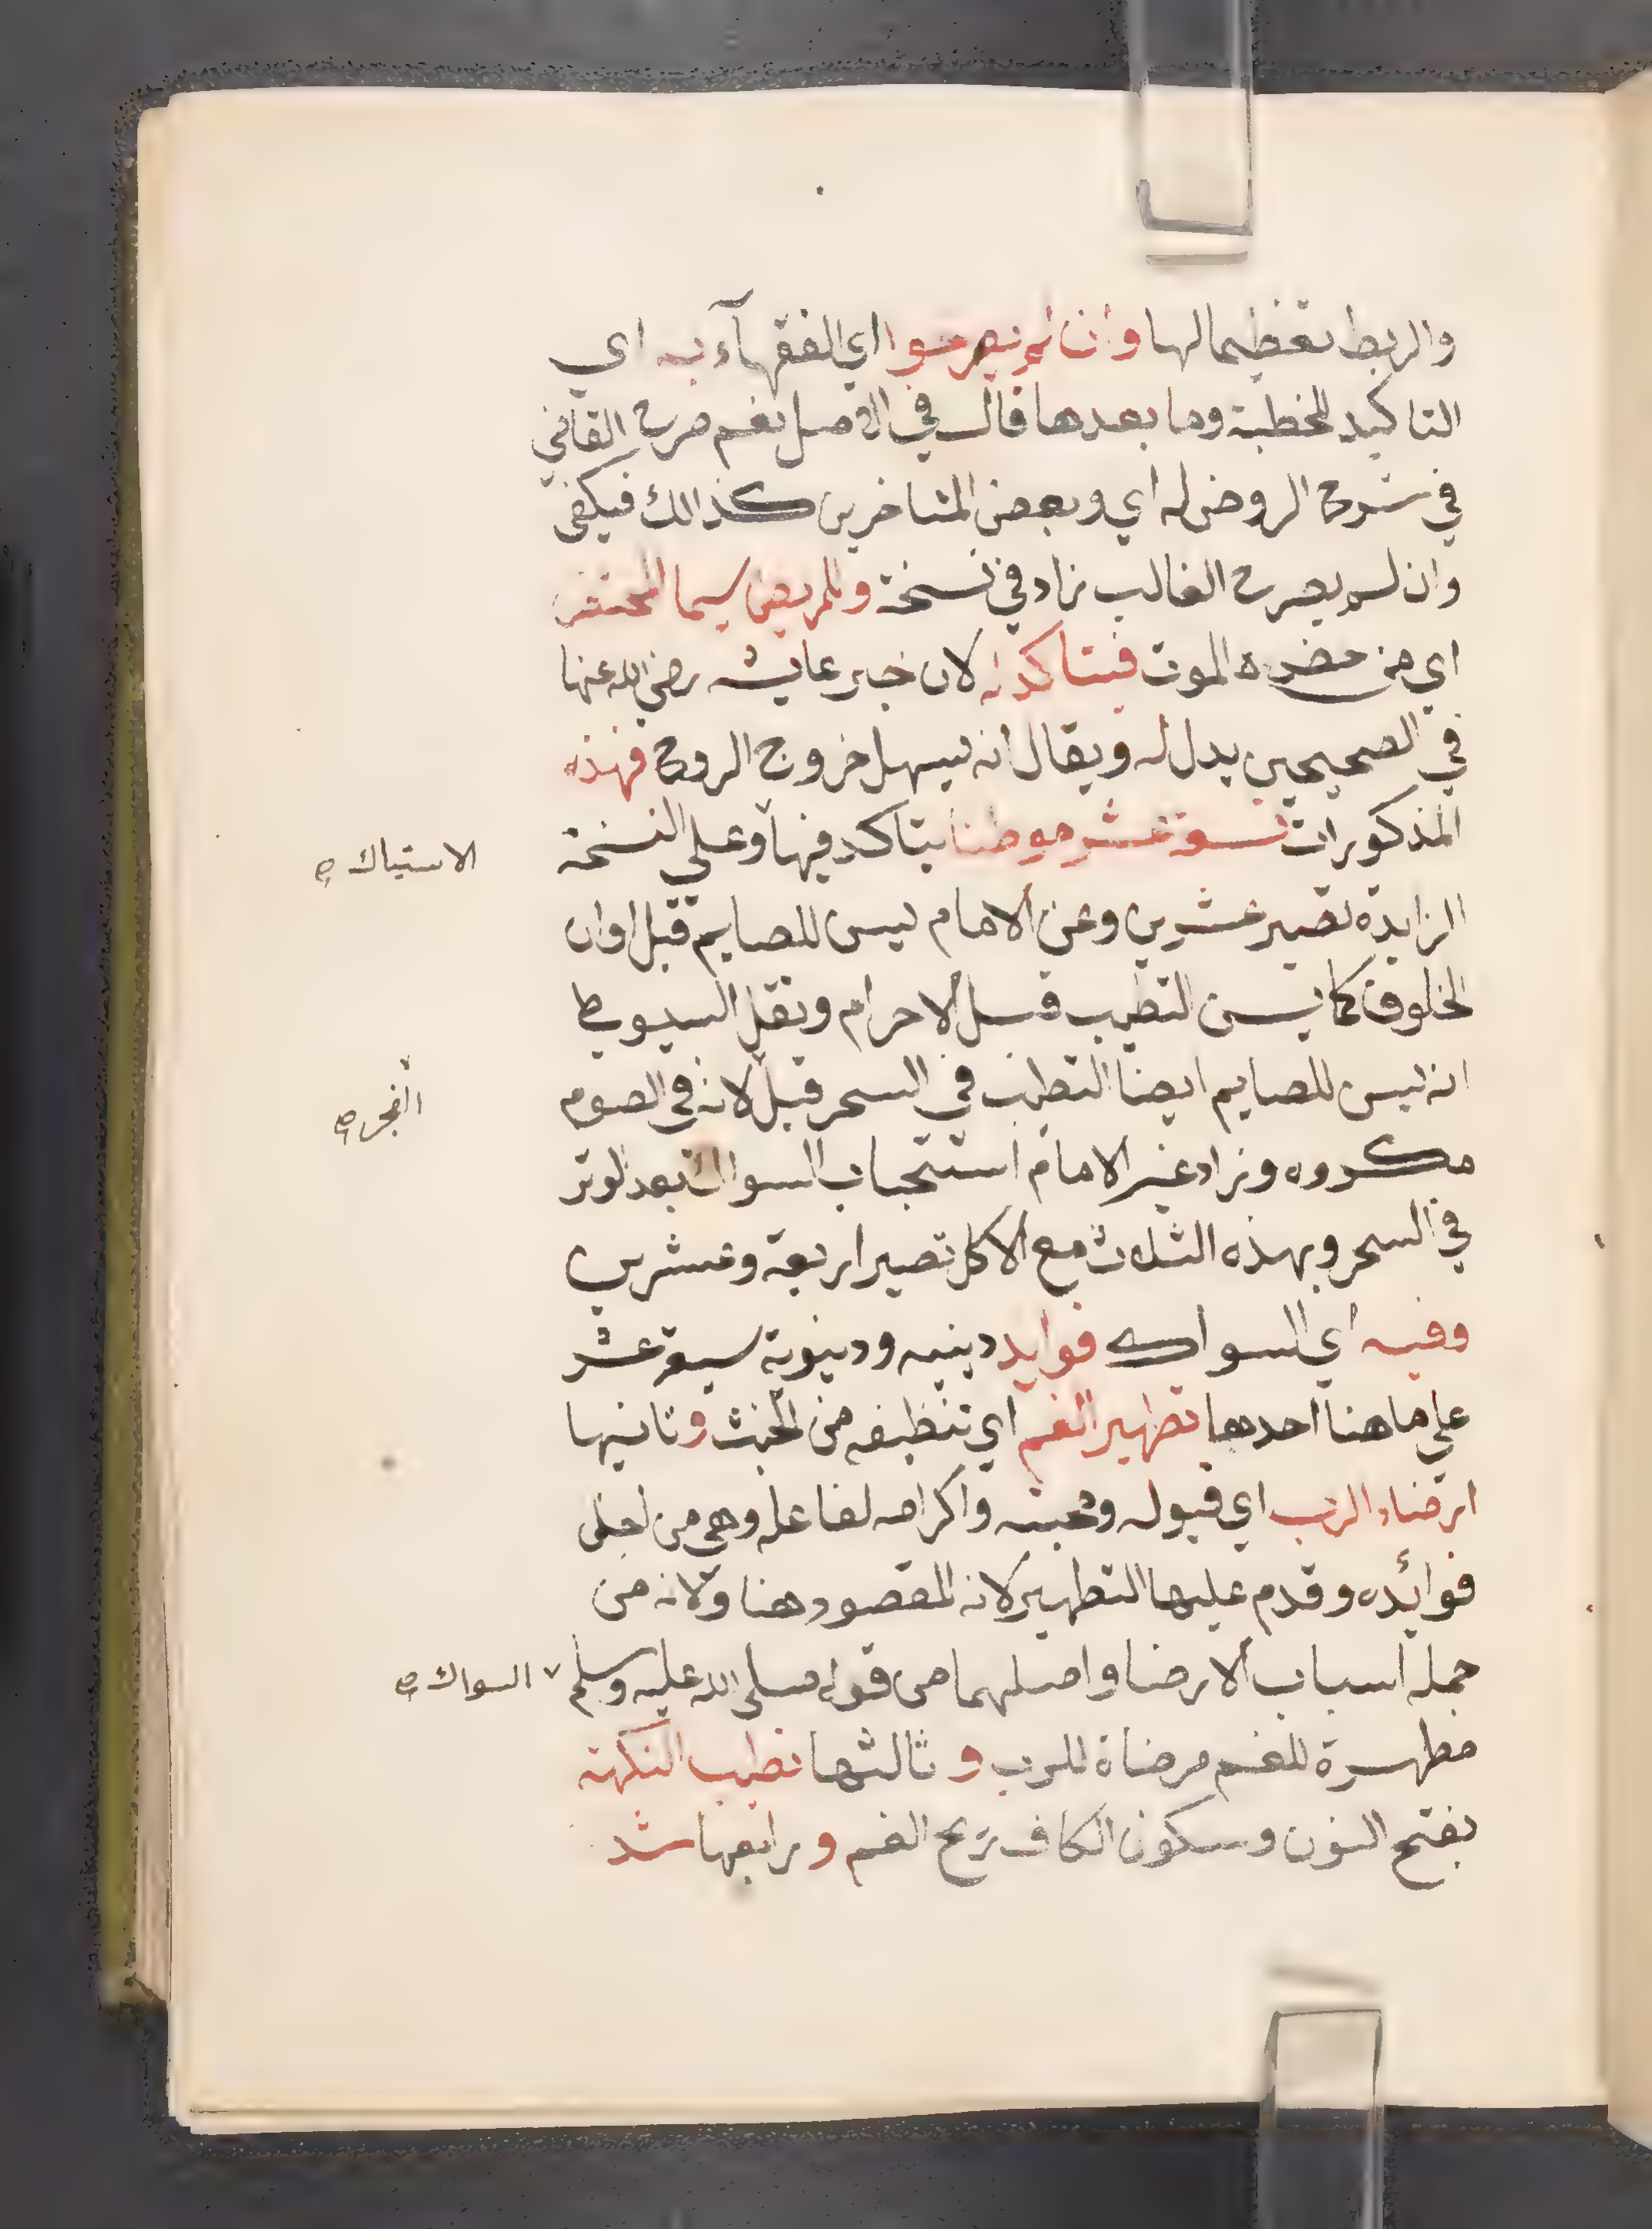 والربط تعظيما لها وان لم يصرحوا اي الفقهآء به اي
التاكيد للخطبة وما بعدها قال في الاصل نعم صرح القاضي
في شرح الروض له اي وبعض المتاخرين كذالك فيكفي
وان لم يصرح الغالب زاد في نسخة وللمريض سيما المحتضر
اي من حضره الموت فيتاكد له لان خبر عايشه رضي الله عنها
في الصحيحين يدل له ويقال انه يسهل خروج الروح فهذه
المذكورات تسعة عشر موطنا يتاكد فيها وعلي النسخة
الاستياك صح
الزايدة تصير عشرين وعن الامام يسن للصايم قبل اوان
الخلوف كما يسن التطيب قبل الاحرام ونقل السيوطي
انه يسن للصايم ايضا التطيب في السحر قبل لانه في الصوم
الفجر صح
مكروه وزاد غير الامام استحباب السواك بعد لوتر
في السحر وبهذه الثلاث مع الاكل تصير اربعة وعشرين
وفيه اي السواك فوايد دينيه ودنيوية سبعة عشر
علي ما هنا احدها تطهير الفم اي تنظيفه من الخبث وثانيها
ارضاء الرب اي قبوله ومحبته واكرامه لفاعله وهي من اعلى
فوائده وقدم عليها التطهير لانه المقصود هنا ولانه من
جملة اسباب الارضا واصلهما من قوله صلى الله عليه وسلم
السواك صح
مطهرة للفم مرضاة للرب وثالثها تطيب النكهة
بفتح النون وسكون الكاف ريح الفم ورابعها شد